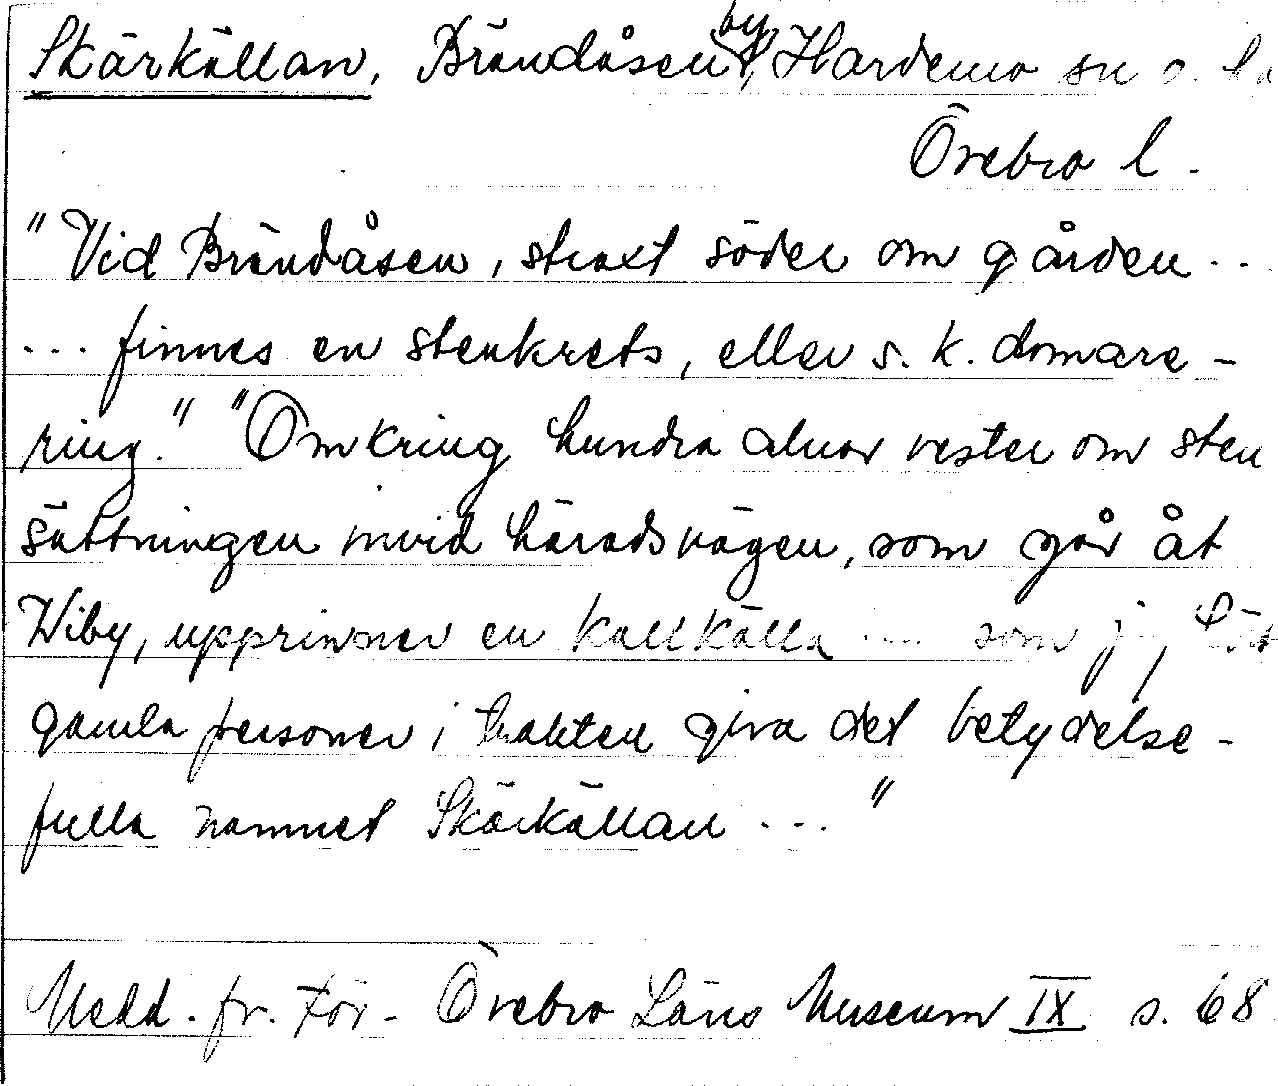 Skärkällan, Brändåsen by, Hardemo sn o. hd
Örebro l.
"Vid Brändåsen, straxt söder om gården ...
... finnes en stenkrets, eller s. k. domare-
ring." "Omkring hundra alnar vester om sten
sättningen invid häradsvägen, som går åt
Wiby, upprinner en kallkälla .... som jag hört
gamla personer i trakten giva det betydelse-
fulla namnet Skärkällan ... "
Medd. fr. För. Örebro Läns Museum IX s. 68